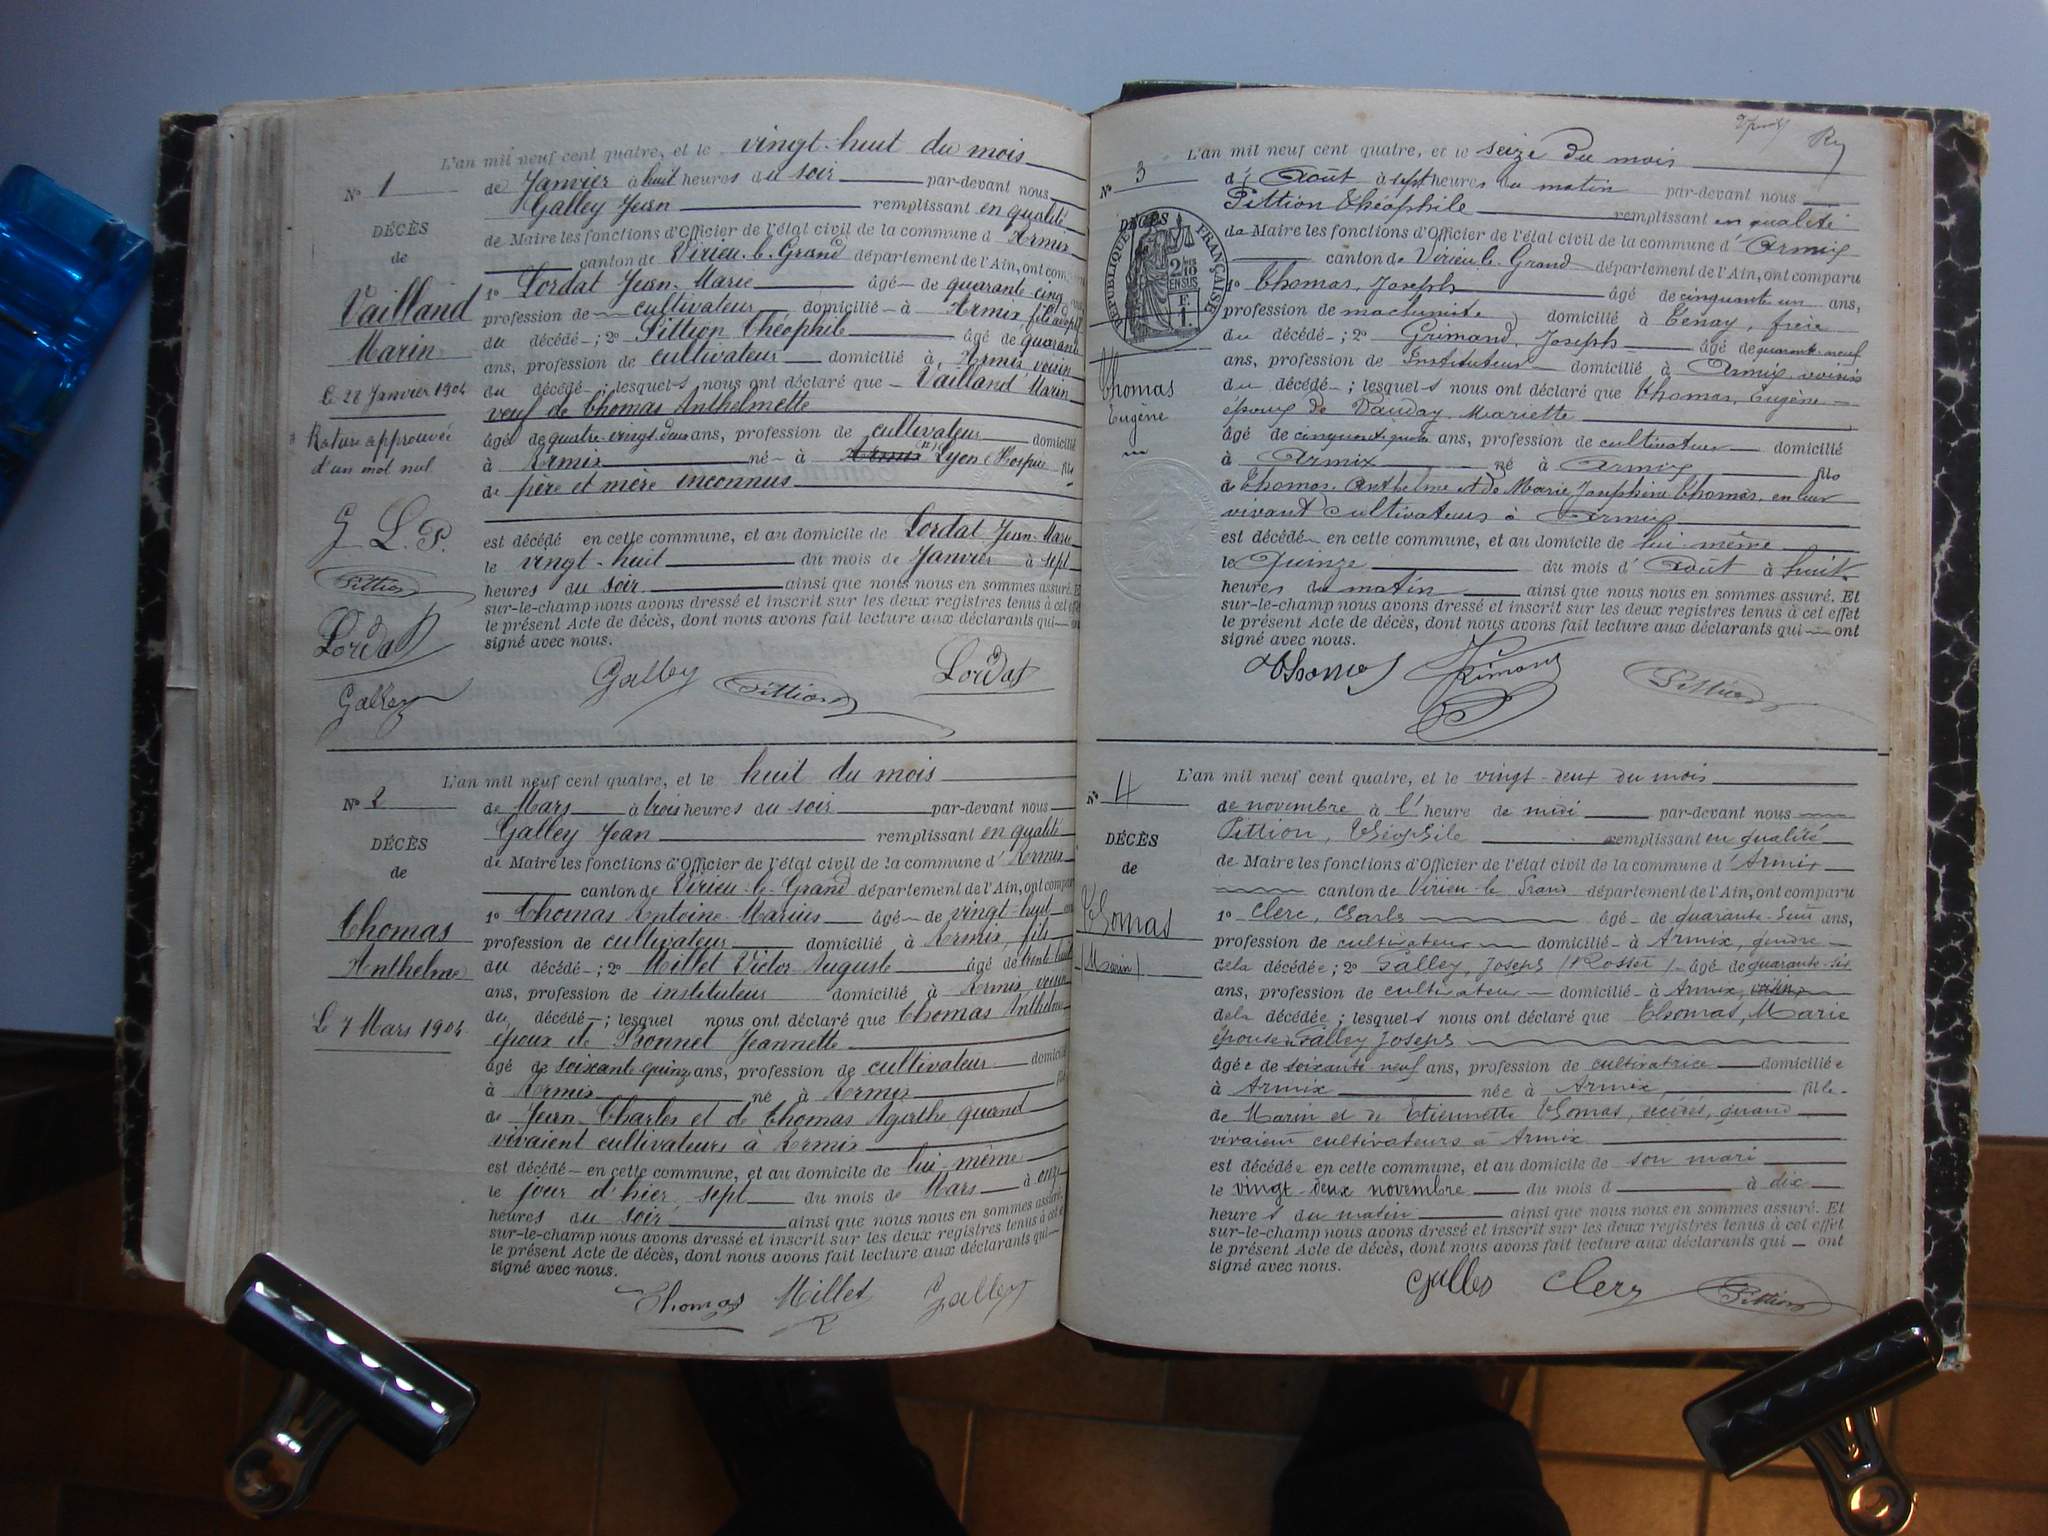 L'an mil neuf cent quatre, et le vingt-huit du mois
N° 1
de Janvier à huit heures du soir par-devant nous
Galley Jean remplissant en qualité
DÉCÈS
de Maire les fonctions d'Officier de l'état civil de la commune d' Armix
de
canton de Virieu-le-Grand département de l'Ain, ont com
Vailland
1° Lordat Jean-Marie âgé de quarante cinq
profession de cultivateur domicilié à Armix, fils
Marin
du décédé ; 2° Pittion Théophile âgé de quarante
ans, profession de cultivateur domicilié à Armix voisin
Le 28 Janvier 1904
du décédé ; lesquels nous ont déclaré que Vailland Marin
veuf de Thomas Anthelmette
Rature approuvée
d'un mot nul
âgé de quatre-vingt-deux ans, profession de cultivateur domicilié
à Armix né à Armix Lyon (Hospice fils
de père et mère inconnus
G L. P.
est décédé en cette commune, et au domicile de Lordat Jean-Marie
le vingt-huit du mois de Janvier à sept
Pittion
heures du soir ainsi que nous nous en sommes assuré. E
sur-le-champ nous avons dressé et inscrit sur les deux registres tenus à cet effet
Lordat
le présent Acte de décès, dont nous avons fait lecture aux déclarants qui
signé avec nous.
Galley
Galley Pittion Lordat
L'an mil neuf cent quatre, et le huit du mois
N° 2
de Mars à trois heures du soir par-devant nous
Galley Jean remplissant en qualité
DÉCÈS
de Maire les fonctions d'Officier de l'état civil de la commune d' Armix
de
canton de Virieu-le-Grand département de l'Ain, ont compar
1° Thomas Antoine Marius âgé de vingt-huit
Thomas
profession de cultivateur domicilié à Armix, fils
Anthelme
du décédé ; 2° Millet Victor Auguste âgé de trente-huit
ans, profession de instituteur domicilié à Armix, voisin
Le 7 Mars 1904
du décédé ; lesquel nous ont déclaré que Thomas Anthelme
époux de Bonnet Jeannette
âgé de soixante quinze ans, profession de cultivateur domicilié
à Armix né à Armix fils
de Jean-Charles et de Thomas Agarthe quand
vivaient cultivateurs à Armix
est décédé en cette commune, et au domicile de lui-même
le jour d'hier, sept du mois de Mars à onze
heures du soir ainsi que nous nous en sommes assuré.
sur-le-champ nous avons dressé et inscrit sur les deux registres tenus à cet e
le présent Acte de décès, dont nous avons fait lecture aux déclarants qui
signé avec nous.
Thomas Millet Galley
L'an mil neuf cent quatre, et le seize du mois
N° 3
d' Août à sept heures du matin par-devant nous
Pittion Théophile remplissant en qualité
DÉCÈS
RÉPUBLIQUE FRANÇAISE
2/10 EN SUS
de Maire les fonctions d'Officier de l'état civil de la commune d' Armix
canton de Virieu-le-Grand département de l'Ain, ont comparu
1° Thomas, Joseph âgé de cinquante un ans,
profession de machiniste, domicilié à Tenay, frère
du décédé ; 2° Grimand, Joseph âgé de quarante-neuf
ans, profession de Instituteur domicilié à Armix, voisin
Thomas
Eugène
du décédé ; lesquels nous ont déclaré que Thomas, Eugène
époux de Dauday Mariette
âgé de cinquante quatre ans, profession de cultivateur domicilié
à Armix né à Armix fils
de Thomas Anthelme et de Marie Joséphine Thomas, en leur
vivant cultivateurs à Armix
est décédé en cette commune, et au domicile de lui-même
le Quinze du mois d' Août à huit
heures du matin ainsi que nous nous en sommes assuré. Et
sur-le-champ nous avons dressé et inscrit sur les deux registres tenus à cet effet
le présent Acte de décès, dont nous avons fait lecture aux déclarants qui ont
signé avec nous.
Thomas Grimand Pittion
L'an mil neuf cent quatre, et le vingt-deux du mois
N° 4
de novembre à l'heure de midi par-devant nous
Pittion, Théophile remplissant en qualité
DÉCÈS
de Maire les fonctions d'Officier de l'état civil de la commune d' Armix
de
canton de Virieu-le-Grand département de l'Ain, ont comparu
Thomas
1° Clerc, Charles âgé de quarante-huit ans,
profession de cultivateur domicilié à Armix, gendre
(Marin)
de la décédée ; 2° Galley, Joseph (Rosset) âgé de quarante-six
ans, profession de cultivateur domicilié à Armix, voisin
de la décédée ; lesquels nous ont déclaré que Thomas, Marie
épouse Galley Joseph
âgée de soixante-neuf ans, profession de cultivatrice domiciliée
à Armix née à Armix, fille
de Marin et de Etiennette Thomas, décédés, quand
vivaient cultivateurs à Armix
est décédée en cette commune, et au domicile de son mari
le vingt-deux novembre du mois d à dix
heures du matin ainsi que nous nous en sommes assuré. Et
sur-le-champ nous avons dressé et inscrit sur les deux registres tenus à cet effet
le présent Acte de décès, dont nous avons fait lecture aux déclarants qui ont
signé avec nous.
Galley Clerc Pittion